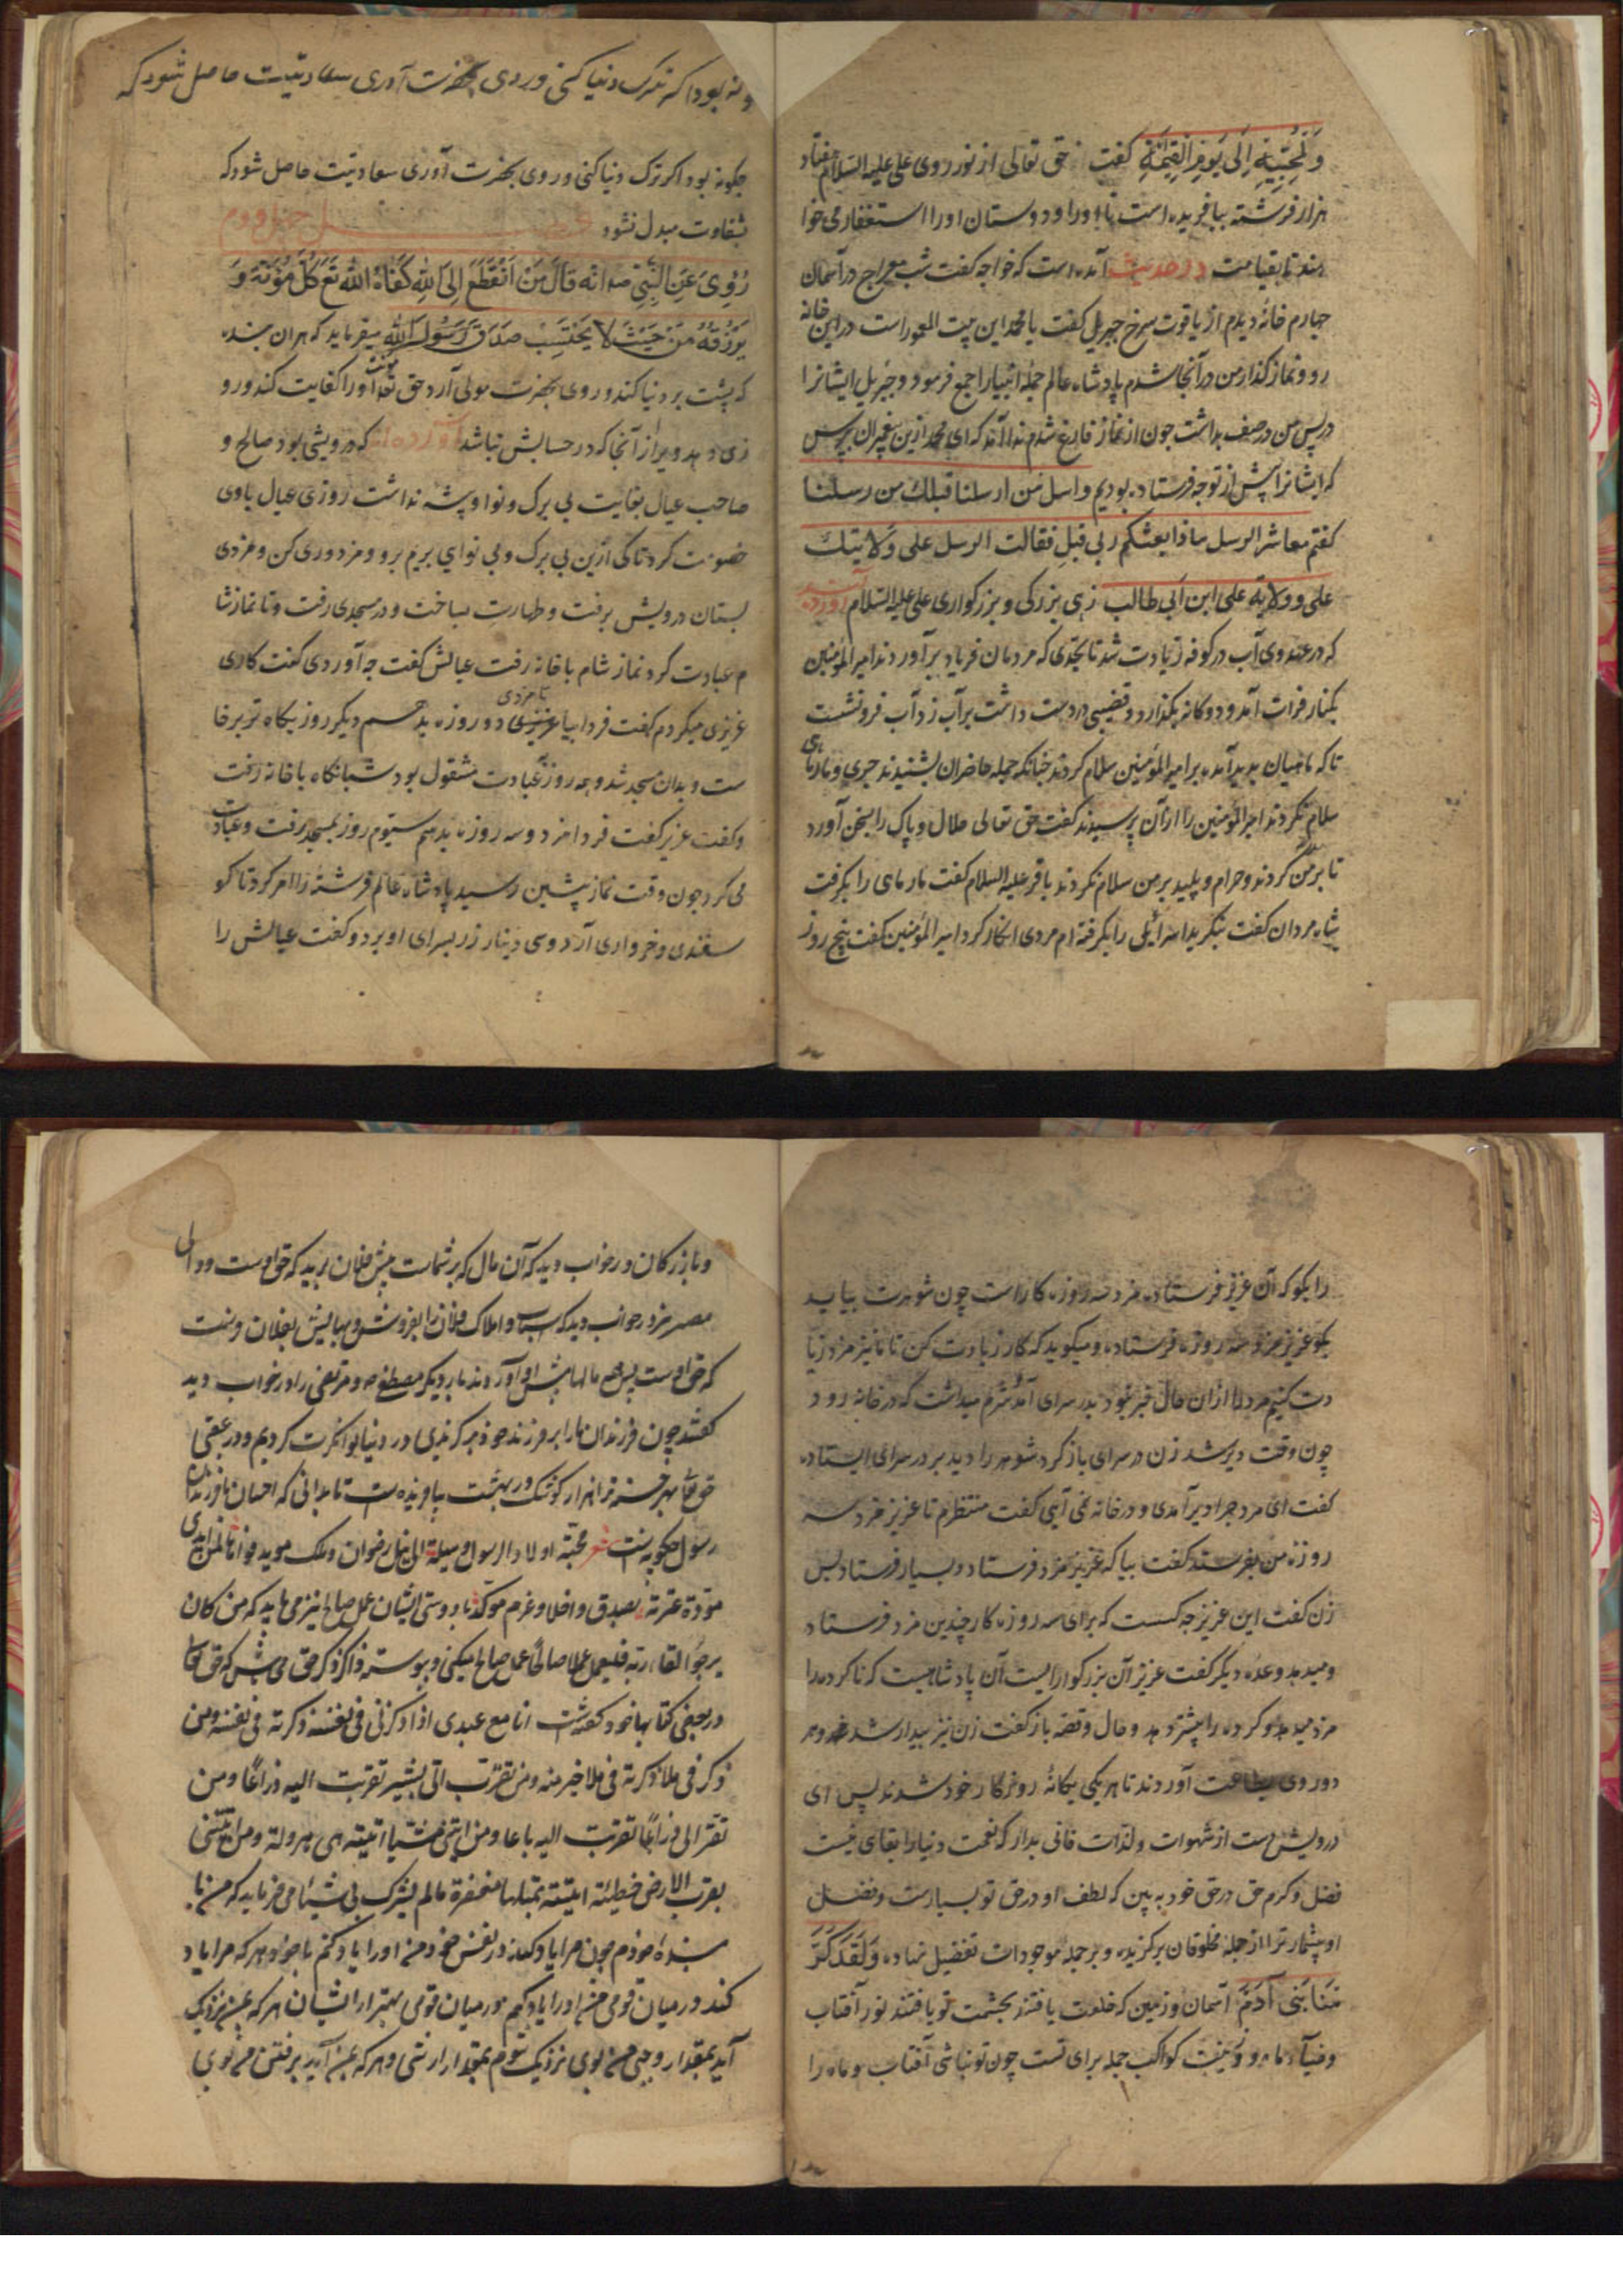 وَلِمُحِبِّيهِ اِلَى يَومِ القِيٰمَةِ كفت حق تعالى از نور روى على عليه السلام هفتاد
هزار فرشته بيافريده است تا اورا و دوستان اورا استغفار مى خوا
هند تا بقيامت در حديث آمده است كه خواجه كفت شب معراج در آسمان
چهارم خانهٔ ديدم از ياقوت سرخ جبريل كفت يا محمد اين بيت المعمور است در اين خانه
رو و نماز كذار من در آنجا شدم پادشاه عالم جمله انبيا را جمع فرمود و جبريل ايشانرا
در پس من در صف بداشت جون از نماز فارغ شدم ندا آمد كه اى محمد ازين پيغمبران بپرس
كه ايشانرا پيش از تو جه فرستاده بوديم واسل من ارسلنا قبلك من رسلنا
كفتم معاشر الرسل ماذا بعثكم ربى قبل فقالت الرسل على ولايتك
على وولاية على ابن ابى طالب زهى بزركى و بزركوارى على عليه السلام آورده اند
كه در عهد وى آب در كوفه زيادت شد تا بحدى كه مردمان فرياد برآوردند امير المؤمنين
بكنار فرات آمد و دوكانه بكذارد و قضيبى در دست داشت بر آب زد آب فرو نشست
تا كه ماهيان پديد آمده بر امير المؤمنين سلام كردند چنانكه جمله حاضران بشنيدند جرى و مار ماهى
سلام نكردند امير المؤمنين را از آن پرسيدند كفت حق تعالى حلال و پاك را بسخن آورد
تا بر من سلام كردند و حرام و پليد بر من سلام نكردند باقر عليه السلام كفت مار ماهى را بكرفت
شاه مردان كفت بنكريد اسرائيلى را بكرفته ام مردى انكار كرد امير المؤمنين كفت پنج روز
ونه بود اكر ترك دنيا كنى و روى بحضرت آورى سعادتيت حاصل شود كه
جكونه بود اكر ترك دنيا كنى و روى بحضرت آورى سعادتيت حاصل شود كه
بشقاوت مبدل نشود چهل و دوم
رُوِىَ عَنِ النَّبِىِّ صه انّه قَالَ مَنِ انْقَطَعَ اِلَى اللهِ كَفَاهُ الله تَعَ كُلَّ مَؤُنَةٍ وَ
يَرْزُقهُ مِنْ حَيْثُ لا يَحْتَسِبْ صَدَقَ رَسُولُ اللهِ ميفرمايد كه هر ان بنده
كه پشت بر دنيا كند و روى بحضرت مولى آرد حق تعا مؤنت اورا كفايت كند و رو
زى دهد ويرا از آنجا كه در حسابش نباشد آورده اند كه درويشى بود صالح و
صاحب عيال بغايت بى برك و نوا و پيشه نداشت روزى عيال باوى
خصومت كرد تا كى ازين بى برك و بى نوايى بريم برو و مزدورى كن و مزدى
بستان درويش برفت و طهارت بساخت و در مسجدى رفت و تا نماز شا
م عبادت كرد نماز شام با خانه رفت عيالش كفت جه آوردى كفت كارى
عزيزى ميكردم كفت فردا بيا تا مزدى دو روزه بدهم ديكر روز بكاه تر برخا
ست و بدان مسجد شد و همه روز بعبادت مشغول بود شبانكاه با خانه رفت
و كفت عزيز كفت فردا مزد سه روزه بدهم سيوم روز بمسجد رفت و عبادت
مى كرد جون وقت نماز پيشين رسيد پادشاه عالم فرشتهٔ را امر كرد تا كو
سفندى و خروارى آرد و سى دينار زر بسراى او برد و كفت عيالش را
را بكو كه آن عزيز فرستاده مزد سه روزه كار است چون شوهرت بيايد
بكو عزيز مزد سه روزه فرستاده و ميكويد كه كار زيادت كن تا ما نيز مزد زيا
دت كنيم مرد را از ان حال خبر نبود بدر سراى آمد شرم ميداشت كه در خانه رود
چون وقت دير شد زن در سراى باز كرد شوهر را ديد بر در سراى ايستاده
كفت اى مرد چرا دير آمدى و در خانه نمى آيى كفت منتظرم تا عزيز مزد سه
روزه من بفرستد كفت بيا كه عزيز مزد فرستاد و بسيار فرستاد پس
زن كفت اين عزيز جه كسست كه براى سه روزه كار چندين مزد فرستاد
و ميدهد وعده ديكر كفت عزيز آن بزركواريست آن پادشاهيست كه نا كرده را
مزد ميدهد و كرده را بيشتر دهد و حال و قصه باز كفت زن نيز بيدار شد هر
دو روى بطاعت آوردند تا هر يكى يكانهٔ روزكار خود شدند پس اى
درويش دست از شهوات و لذات فانى بدار كه نعمت دنيا را بقاى نيست
فضل و كرم حق در حق خود به بين كه لطف او در حق تو بسيارست و فضل
او بيشمار ترا از جمله مخلوقان بركزيده و بر جمله موجودات تفضيل نهاده وَلَقَدْ كَرَّ
مْنَا بَنِى آدَمَ آسمان و زمين كه خلعت يافتند بحشمت تو يافتند نور آفتاب
و ضياء ماه و زينت كواكب جمله براى تست چون تو نباشى آفتاب و ماه را
و بازركان در خواب ديد كه آن مال كه بر شماست پيش فلان بريد كه حق اوست و والى
مصر نيز در خواب ديد كه اسباب و املاك فلان را بفروش و بهايش بفلان
كه حق اوست پس همه مالها پيش او آوردند بار ديكر مصطفى صه و مرتضى را در خواب ديد
كفتند چون فرزندان ما را بر فرزند خود بركزيدى در دنيا توانكرت كرديم و در عقبى
حق تعا بهر حسنه ترا هزار كوشك در بهشت تا بدانى كه احسان با فرزندان
رسول چكونه است شعر محبة اولاد الرسول وسيلة الى نيل رضوان وملك مويد
مودة عترته بصدق با دوستى ايشان عمل صالح نيز مى بايد كه من كان
يرجوا لقاء ربه فليعمل عملا صالحا عمل صالح ميكنى و پيوسته ذاكر ذكر حق مى باش كه حق تعا
در بعضى كتابها خود كفته است انا مع عبدى اذا ذكرنى فى نفسه ذكرته فى نفسه ومن
ذكر فى ملا ذكرته فى ملا خير منه ومن تقرب الى بشبر تقربت اليه ذراعًا ومن
تقرب الى ذراعًا تقربت اليه باعا ومن اتينى مشيا اتيته هرولة ومن اتينى
بقرب الارض خطيئة اتيته بمثلها مغفرة مالم يشرك بى شيئا مى فرمايد كه من با
بنده خودم چون مرا ياد كند در نفس خود من اورا ياد كنم با خود و هر كه مرا ياد
كند در ميان قومى من اورا ياد كنم در ميان قومى بهتر از ايشان هر كه بمن نزديك
آيد بمقدار وجبى من بوى نزديك شوم بمقدار ارشى و هر كه بمن آيد برفتن من بوى